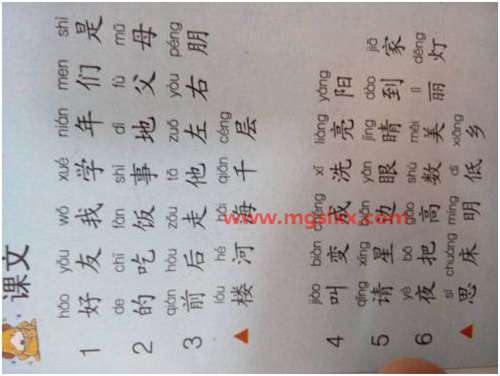 课文
hǎo yǒu wǒ xué nián men shì
1 好 友 我 学 年 们 是
de chī fàn shì dì fù mǔ
2 的 吃 饭 事 地 父 母
qián hòu zǒu tā zuǒ yòu péng
3 前 后 走 他 左 右 朋
lóu hé hǎi qiān céng
▲ 楼 河 海 千 层
jiào biàn chéng xǐ liàng yáng
4 叫 变 成 洗 亮 阳
qǐng xīng biān yǎn jīng dào jiā
5 请 星 边 眼 睛 到 家
yè bǎ gāo shù měi lì dēng
6 夜 把 高 数 美 丽 灯
sī chuáng míng dī xiāng
▲ 思 床 明 低 乡